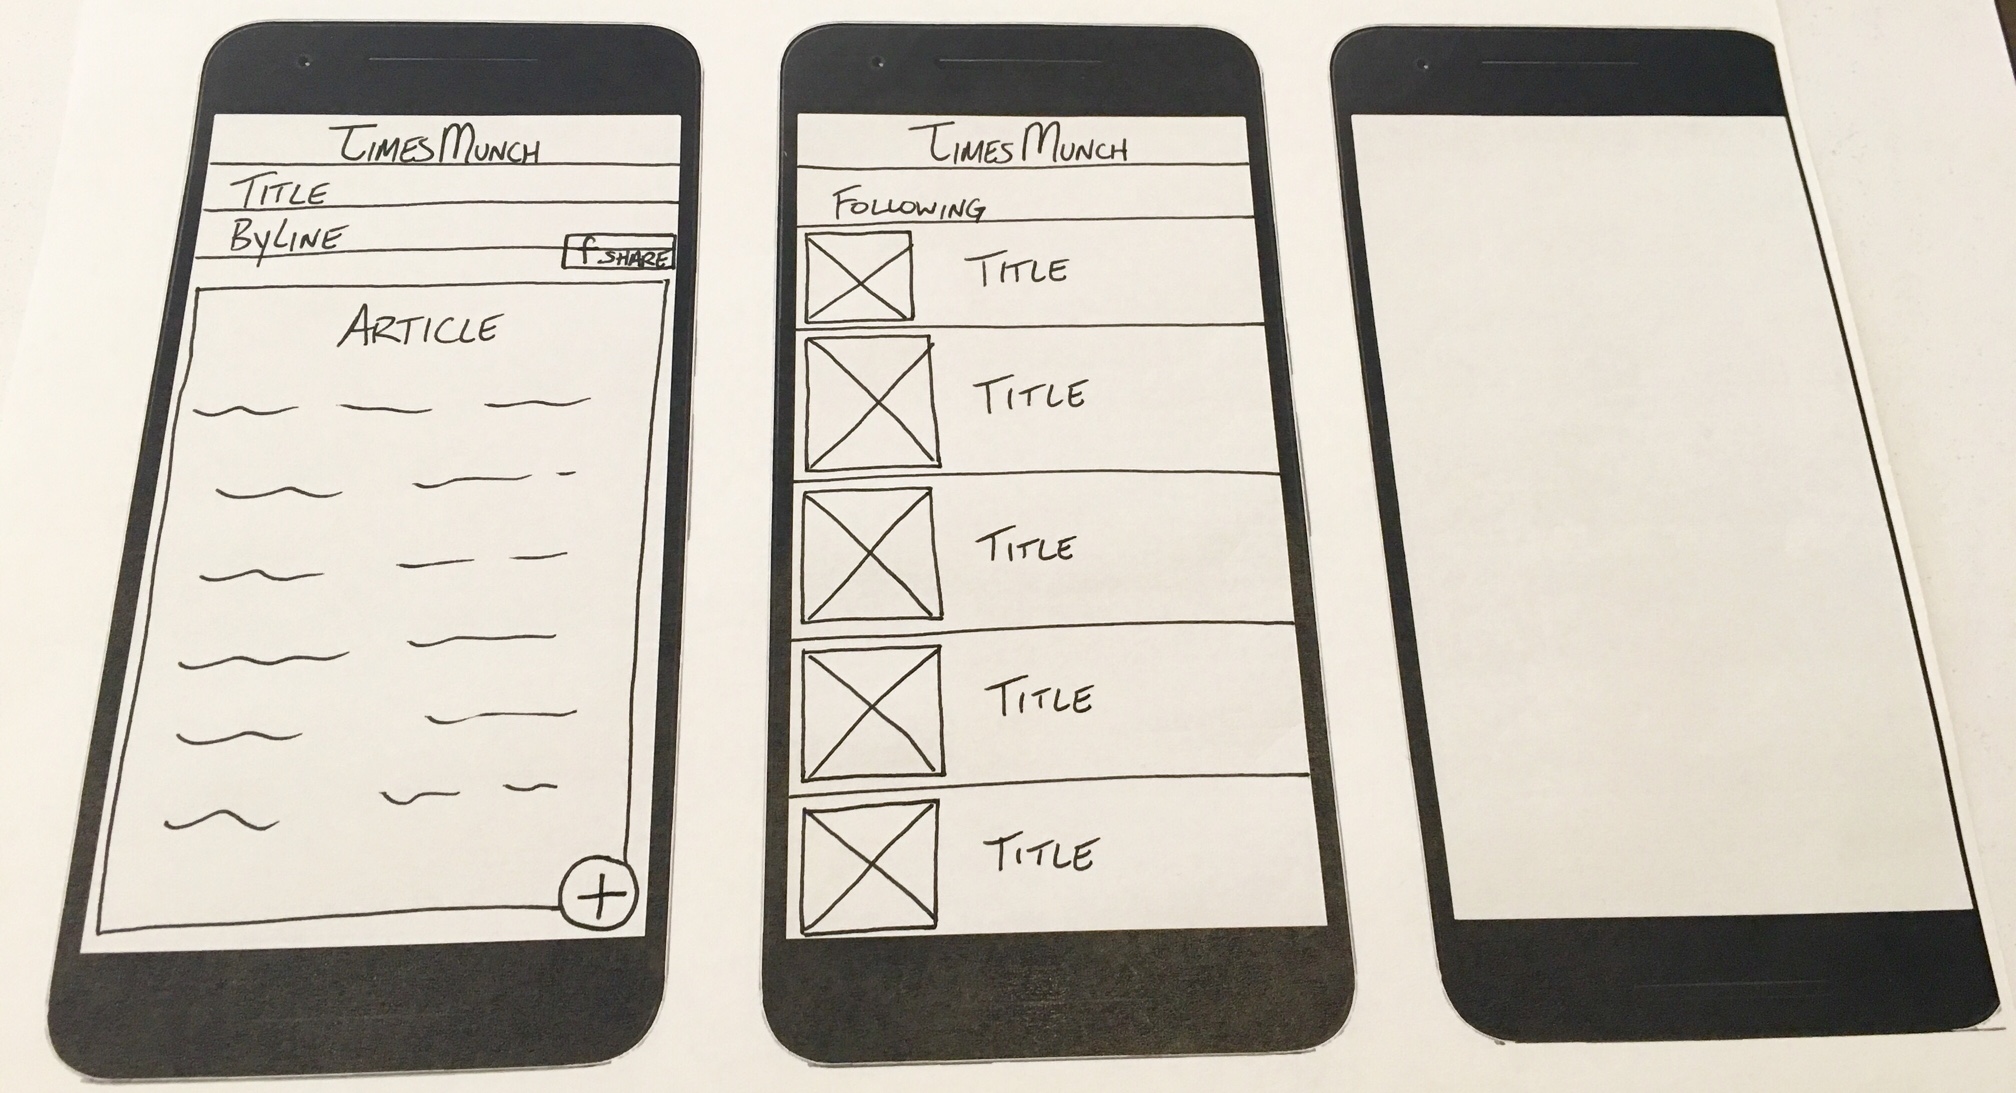 TimesMunch
Title
ByLine
f Share
Article
TimesMunch
Following
Title
Title
Title
Title
Title